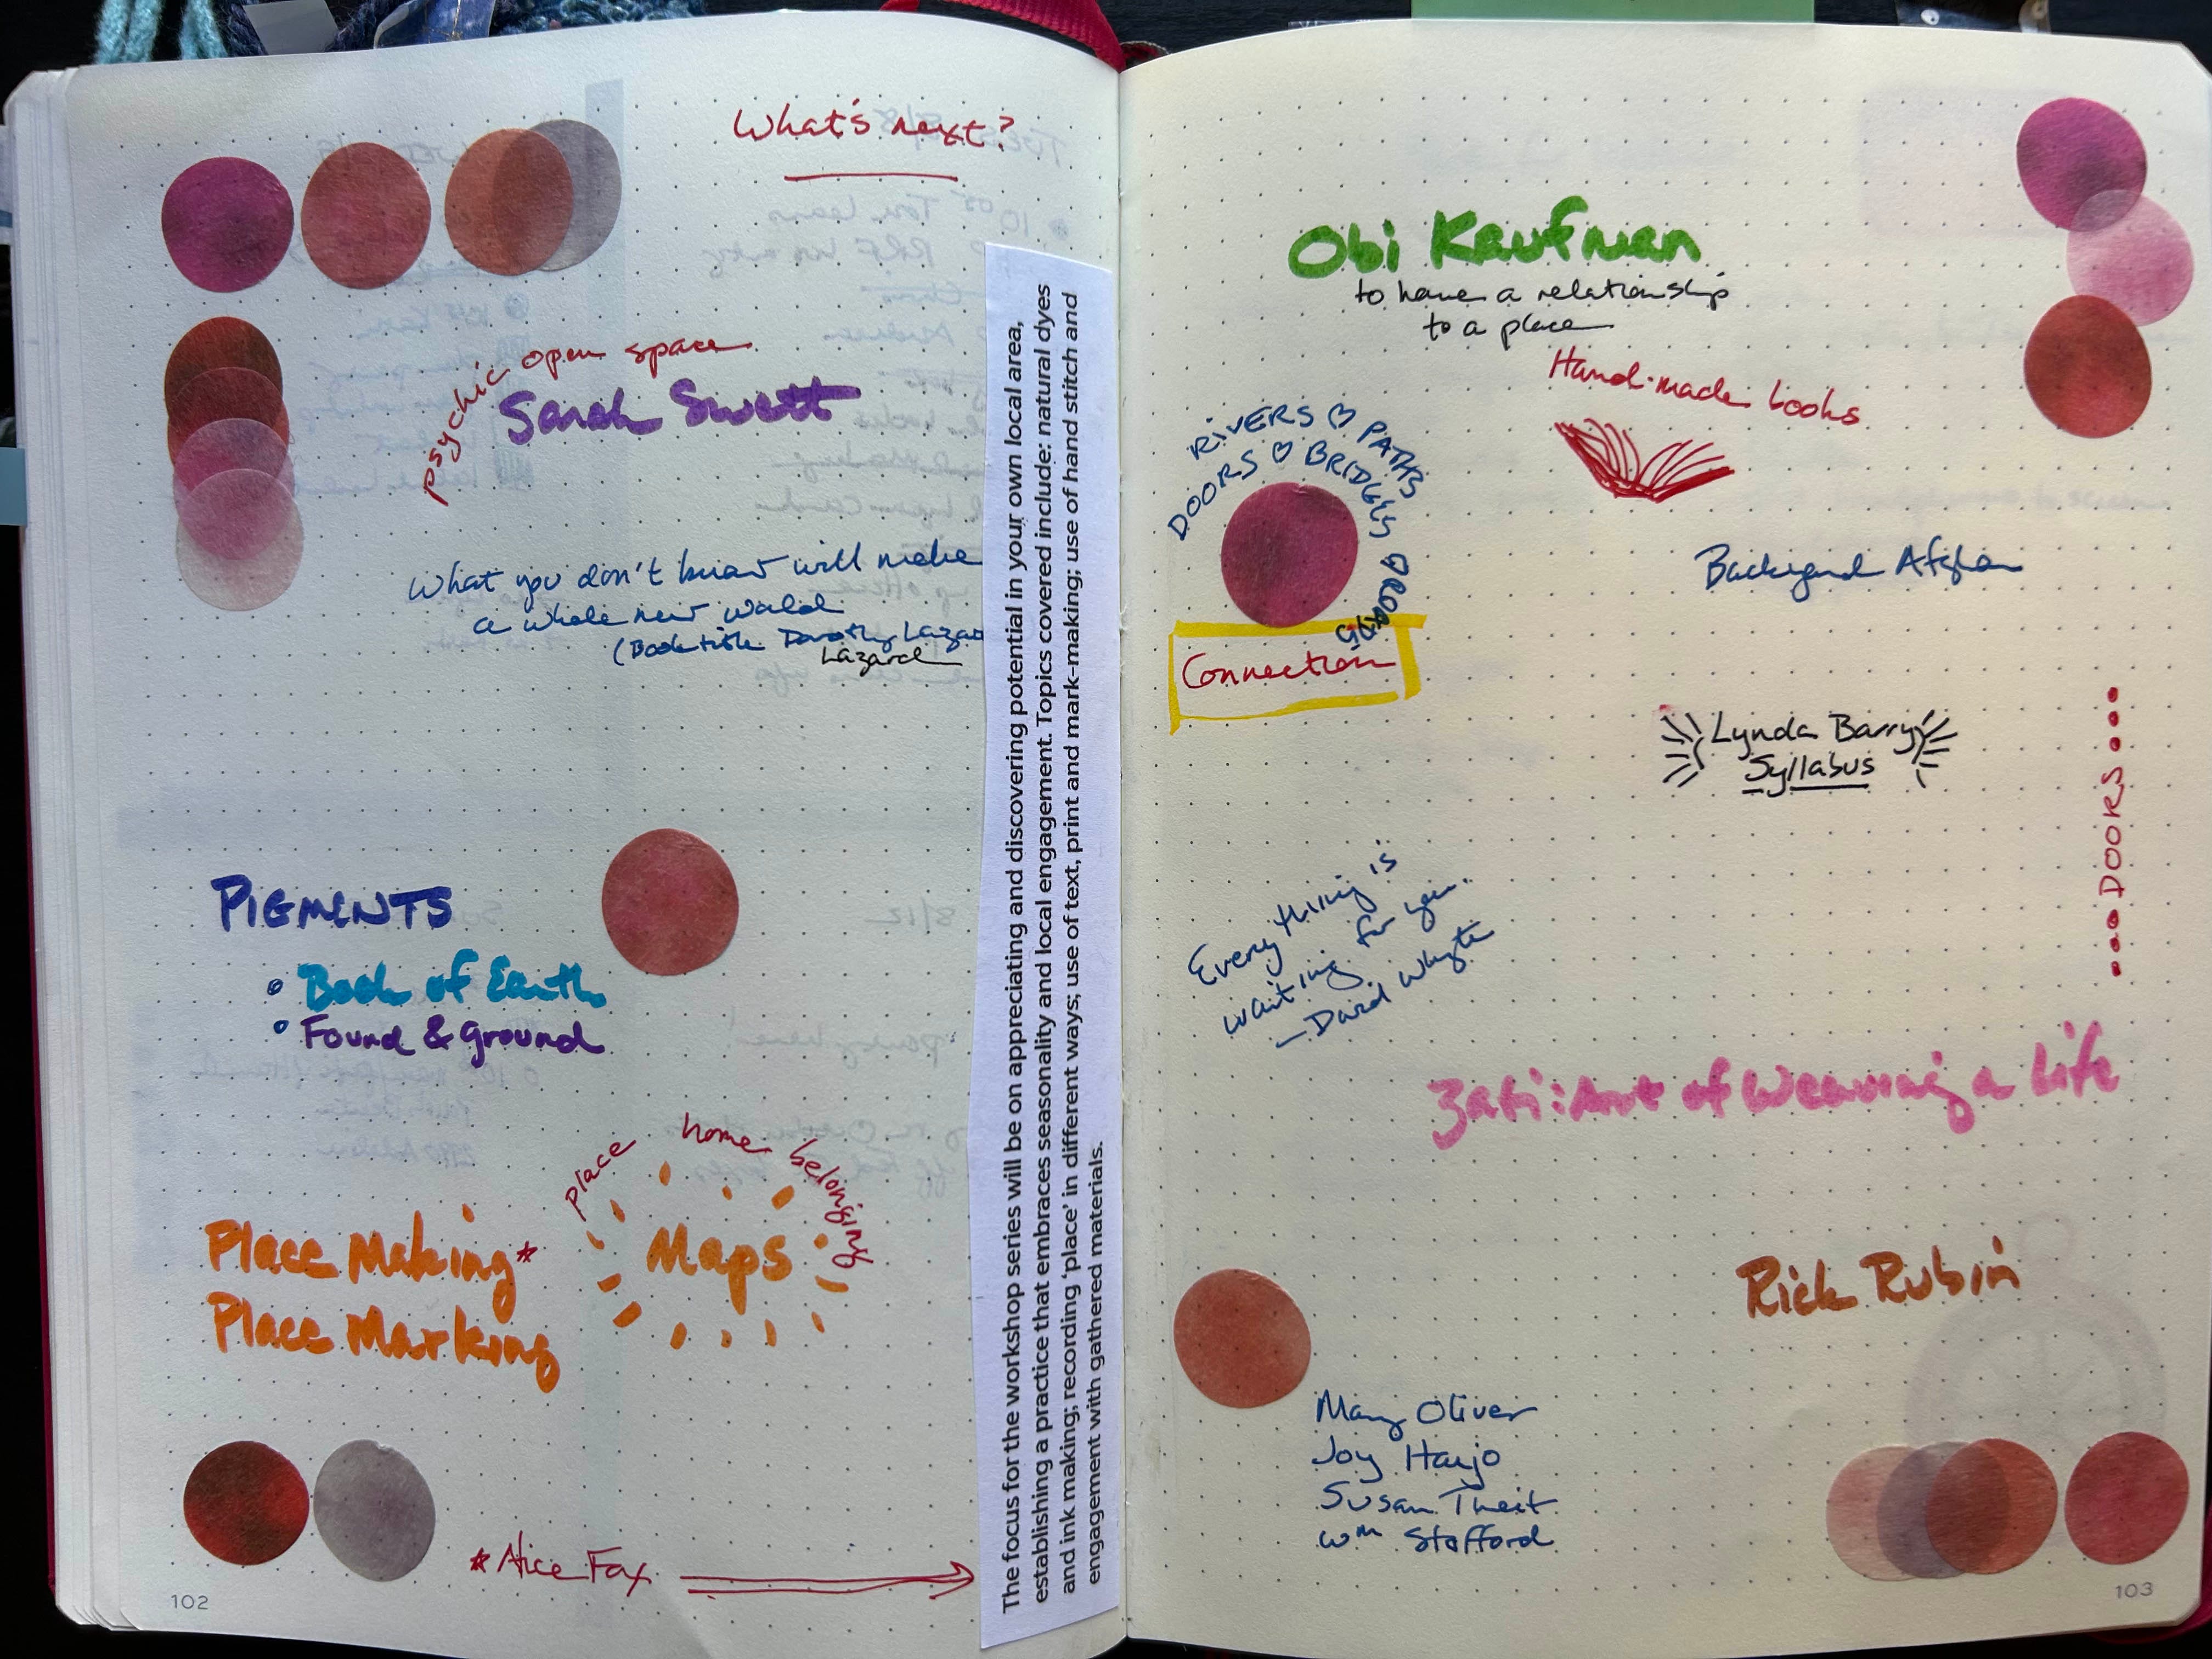 What's next?
psychic open space
Sarah Swett
What you don't know will make
a whole new world
(Book title Dorothy Lazar
Lazard
PIGMENTS
• Book of Earth
• Found & Ground
place home belonging
Maps
Place Making*
Place Marking
*Alice Fox
102
The focus for the workshop series will be on appreciating and discovering potential in your own local area,
establishing a practice that embraces seasonality and local engagement. Topics covered include: natural dyes
and ink making; recording 'place' in different ways; use of text, print and mark-making; use of hand stitch and
engagement with gathered materials.
Obi Kaufman
to have a relationship
to a place
Hand-made books
RIVERS ♡ PATHS
DOORS ♡ BRIDGES ♡ ROADS
Connection
Backyard Afghan
Lynda Barry
Syllabus
...DOORS...
Everything is
waiting for you.
— David Whyte
Zati: Art of Weaving a Life
Rick Rubin
Mary Oliver
Joy Harjo
Susan
Wm Stafford
103